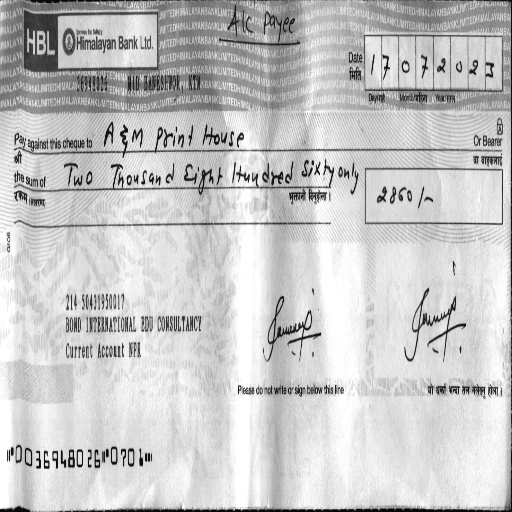 A/C payee
HBL Himalayan Bank Ltd.
Date
मिति
17072023
36948026 MID BANESHWOR, KTM
Pay against this cheque to A & M Print House Or Bearer
श्री वा वाहकलाई
the sum of Two Thousand Eight Hundred Sixty only
रकम (अक्षरमा) भुक्तानी दिनुहोला।
2860/-
214 50431950017
BOND INTERNATIONAL EDU CONSULTANCY
Current Account NPR
Please do not write or sign below this line
⑈0036948026⑈0701⑈